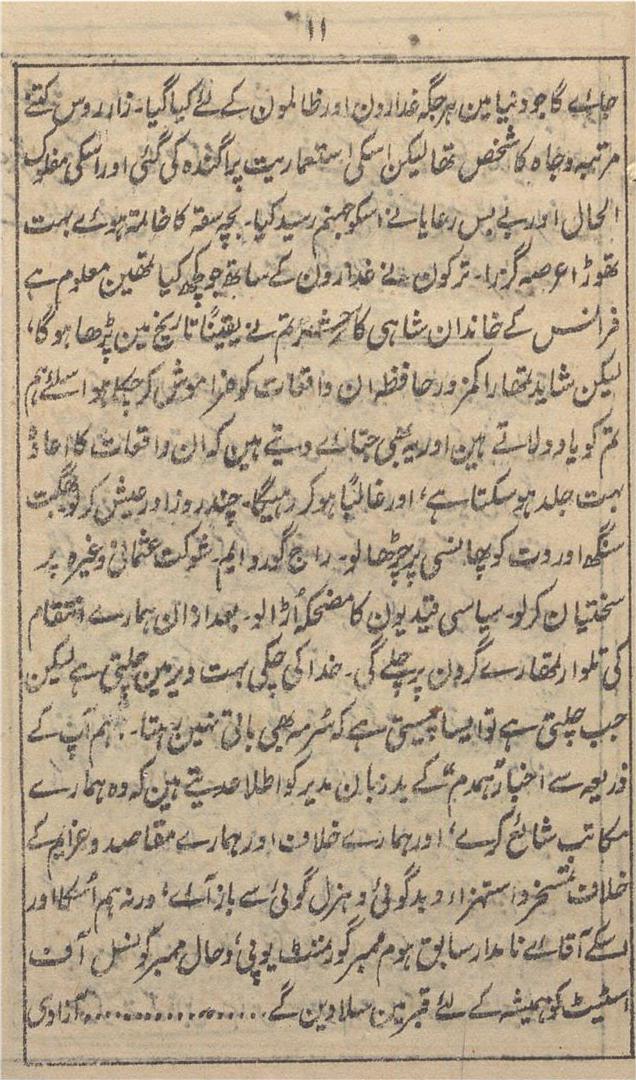 ۱۱
جاۓ گا جو دنیا مین ہر جگہ غدارون اور ظالمون کے لئے کیا گیا۔ زار روس کتنے
مرتبہ و جاہ کا شخص تھا لیکن اسکی استعماریت پراگندہ کی گئی اور اسکی مفلوک
الحال اور بے بس رعایا نے اسکو جہنم رسید کیا۔ بچہ سقہ کا خاتمہ ہوۓ بہت
تھوڑا عرصہ گزرا۔ ترکون نے غدارون کے ساتھ جو کچھ کیا تمھین معلوم ہے
فرانس کے خاندان شاہی کا حشر تم نے یقیناً تاریخ مین پڑھا ہوگا،
لیکن شاید تمھارا کمزور حافظہ ان واقعات کو فراموش کر چکا ہو اسلئے ہم
تم کو یاد دلاتے ہین اور یہ بھی جتاۓ دیتے ہین کہ ان واقعات کا اعادہ
بہت جلد ہو سکتا ہے، اور غالباً ہو کر رہیگا۔ چند روز اور عیش کر لو بھگت
سنگھ اور دت کو پھانسی پر چڑھا لو۔ راج گورو ایم۔ شوکت عثمانی وغیرہ پر
سختیان کر لو۔ سیاسی قیدیون کا مضحکہ اُڑا لو۔ بعد ازان ہمارے انتقام
کی تلوار تمھارے گردن پر چلے گی۔ خدا کی چکی بہت دیر مین چلتی ہے لیکن
جب چلتی ہے تو ایسا پیستی ہے کہ سُرمہ بھی باقی نہین رہتا۔ ہم آپ کے
ذریعہ سے اخبار "ہمدم" کے بدزبان مدیر کو اطلاع دیتے ہین کہ وہ ہمارے
مکاتب شائع کرے، اور ہمارے خلاف اور ہمارے مقاصد و عزایم کے
خلاف تمسخر و استہزاء و بدگوئی و ہزل گوئی سے باز آۓ، ورنہ ہم اُسکا اور
اسکے آقاۓ نامدار سابق ہوم ممبر گورنمنٹ یوپی، و حال ممبر کونسل آف
اسٹیٹ کو ہمیشہ کے لئے قبر مین سلا دین گے ................. آزادی